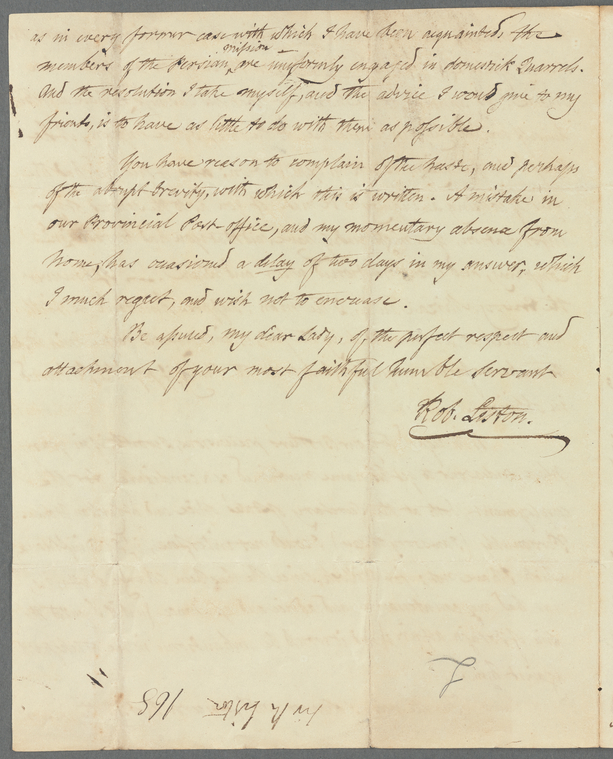 as in every former case with which I have been acquainted, the
members of the Persian mission are uniformly engaged in domestik Quarrels.
And the resolution I take myself, and the advice I would give to my
friends, is to have as little to do with them as possible.
You have reason to complain of the haste, and perhaps
of the abrupt brevity, with which this is written. A mistake in
our Provincial Post office, and my momentary absence from
home, has occasioned a delay of two days in my answer, which
I much regret, and wish not to encrease.
Be assured, my dear Lady, of the perfect respect and
attachment of your most faithful humble Servant
Rob. Liston.
L
Sir R Liston 165